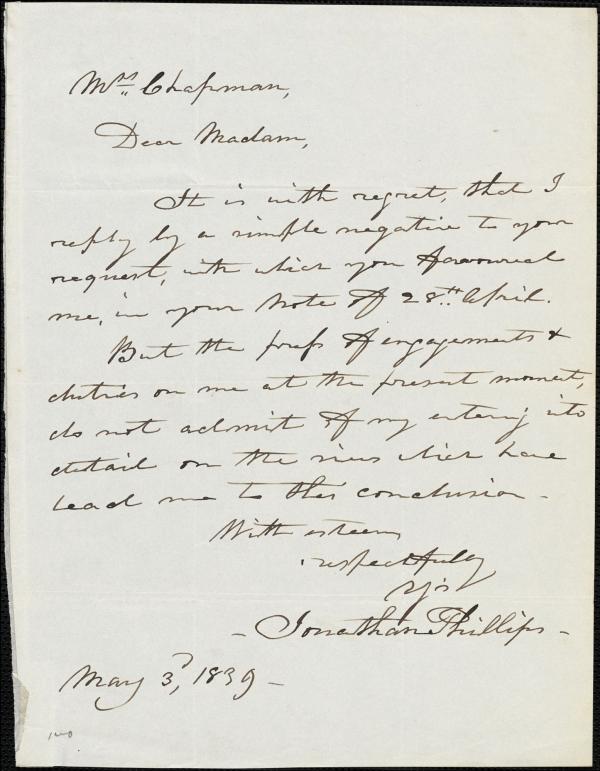 Mrs Chapman,
Dear Madam,
It is with regret, that I
reply by a simple negative to your
request, with which you favoured
me, in your Note of 28th April.
But the press of engagements &
duties on me at the present moment,
do not admit of my entering into
detail on the views which have
lead me to this conclusion -
With esteem
respectfully
Yrs
- Jonathan Phillips -
May 3d, 1839 -